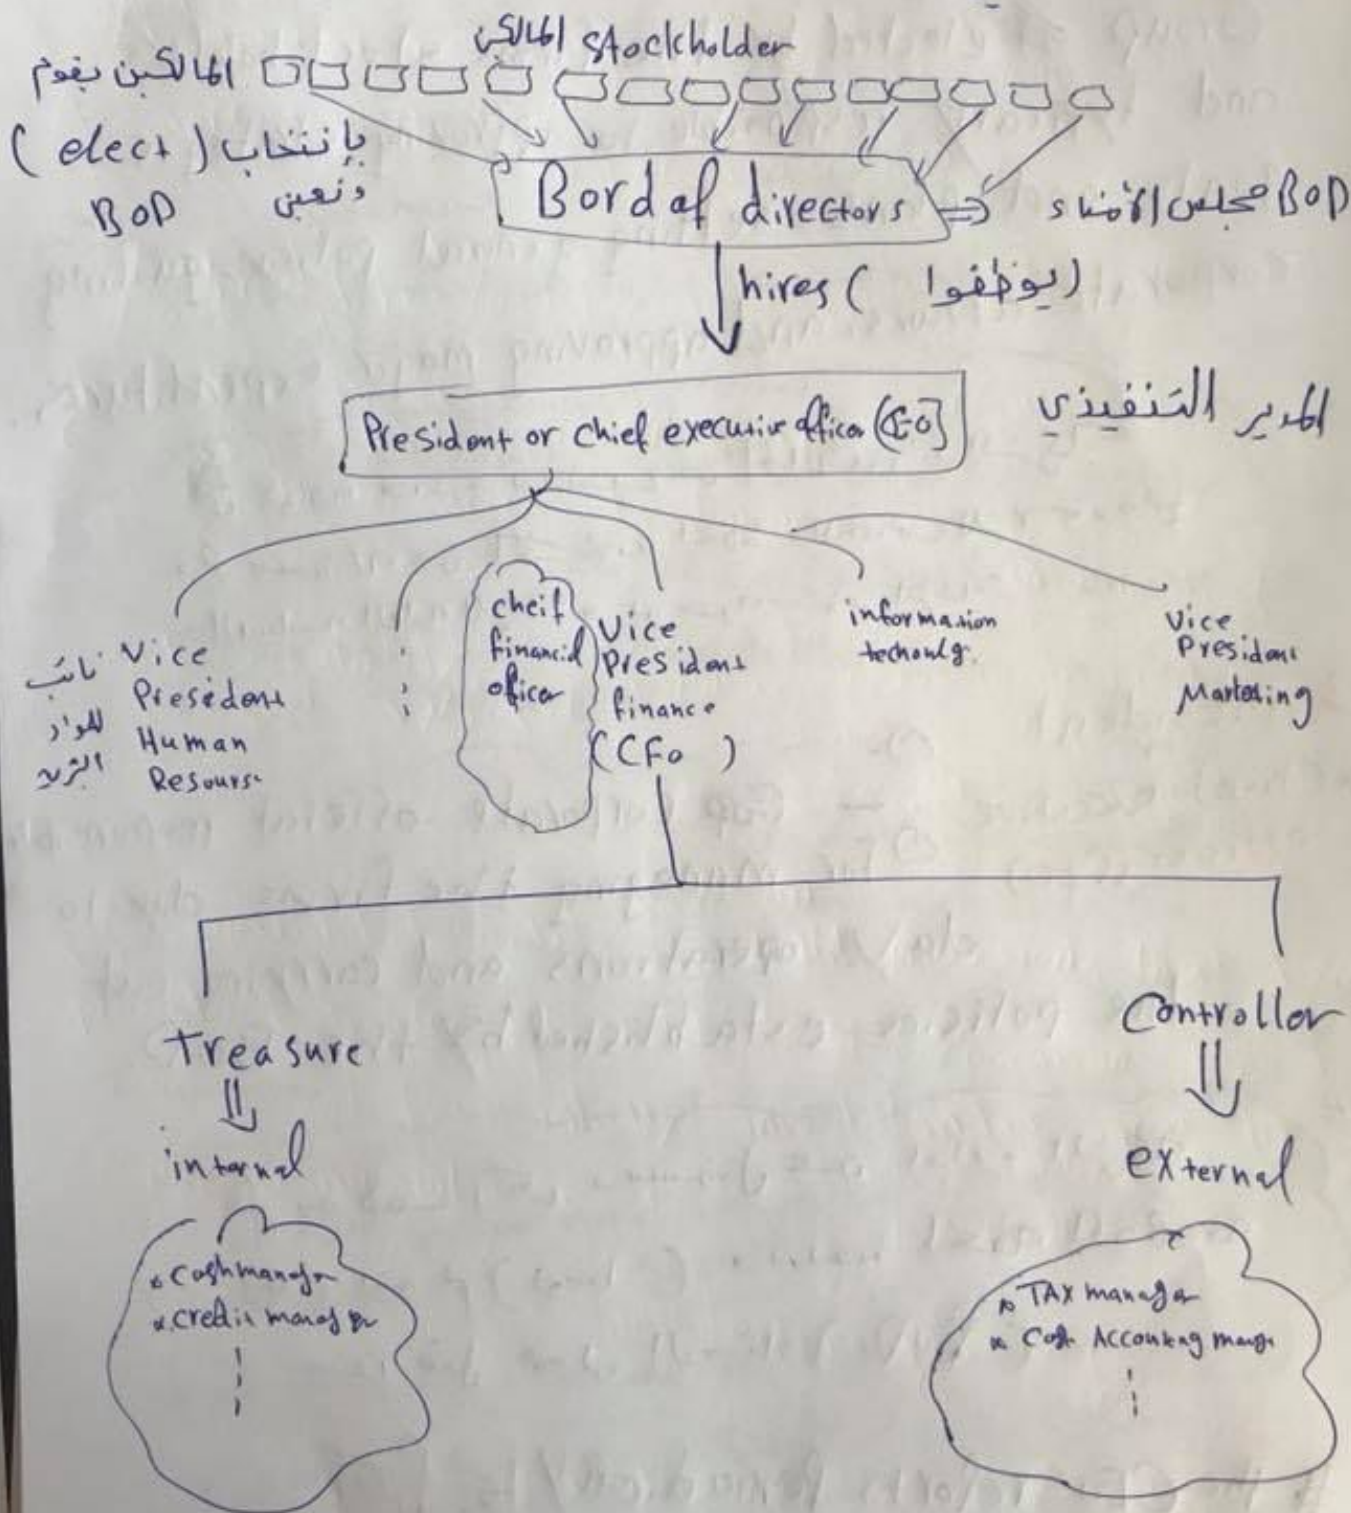 المالكين Stockholder
المالكين يقوم
بإنتخاب (elect)
ونعين BOD
Bord of directors
مجلس الأمناء BOD
hires (يوظفوا)
President or chief executive officer (CEO)
المدير التنفيذي
نائب
للموارد
البشرية
Vice
President
Human
Resourse
cheif
financial
oficer
Vice
President
finance
(CFo)
information
Vice
President
Marketing
Treasure
internal
* Cash manager
* Credit manager
Controller
external
* TAX manager
* Cost Accounting